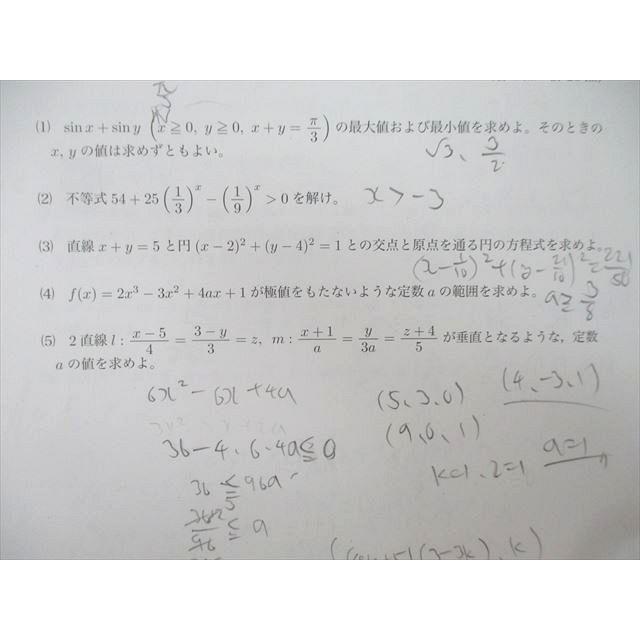 (1) sin x + sin y (x ≧ 0, y ≧ 0, x + y = π/3) の最大値および最小値を求めよ。そのときの
x, y の値は求めずともよい。
√3、 3/2
(2) 不等式 54 + 25(1/3)^x − (1/9)^x > 0 を解け。 x > −3
(3) 直線 x + y = 5 と円 (x − 2)² + (y − 4)² = 1 との交点と原点を通る円の方程式を求めよ。
(x − 1/10)² + (y − 21/10)² = 221/50
(4) f(x) = 2x³ − 3x² + 4ax + 1 が極値をもたないような定数 a の範囲を求めよ。 a ≧ 3/8
(5) 2 直線 l : (x − 5)/4 = (3 − y)/3 = z, m : (x + 1)/a = y/3a = (z + 4)/5 が垂直となるような, 定数
a の値を求めよ。
6x² − 6x + 4a
(5、3、0) (4、−3、1)
36 − 4・6・4a ≦ 0
(9、0、1)
a = 1
k=1、z=1
36 ≦ 96a
≦ a